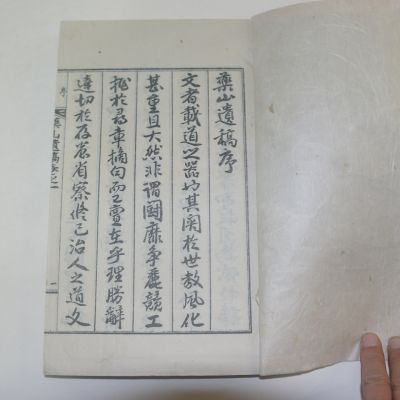 藥山遺稿序
文者載道之器也其関於世教風化
甚重且大然非謂鬪靡争麗競工
拙於尋章摘句而亶在乎理勝辭
達切於存養省察修己治人之道文
序
藥山遺稿卷之一
一